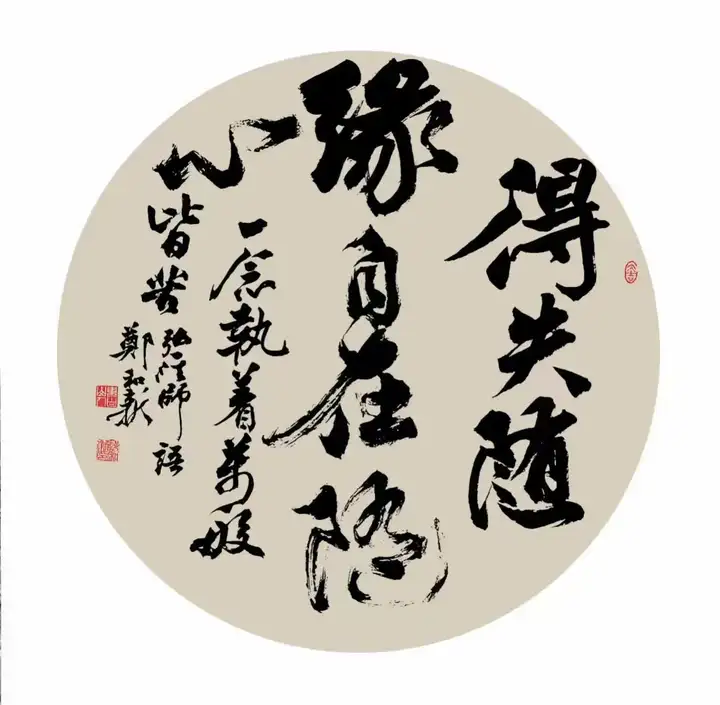 得失随
缘自在随
心
一念執着萬般
皆苦
弘一法師語
鄭和